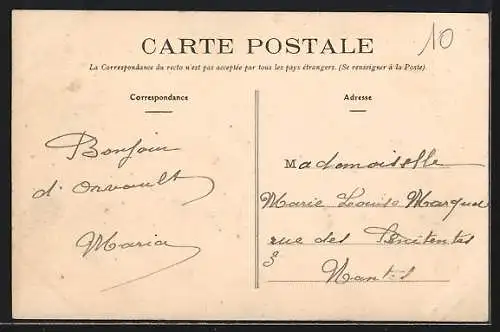 CARTE POSTALE
10
La Correspondance du recto n'est pas acceptée par tous les pays étrangers. (Se renseigner à la Poste)
Correspondance
Bonjour
d'Orvault
Maria
Adresse
Mademoiselle
Marie Louise
rue des Pénitentes
Nantes